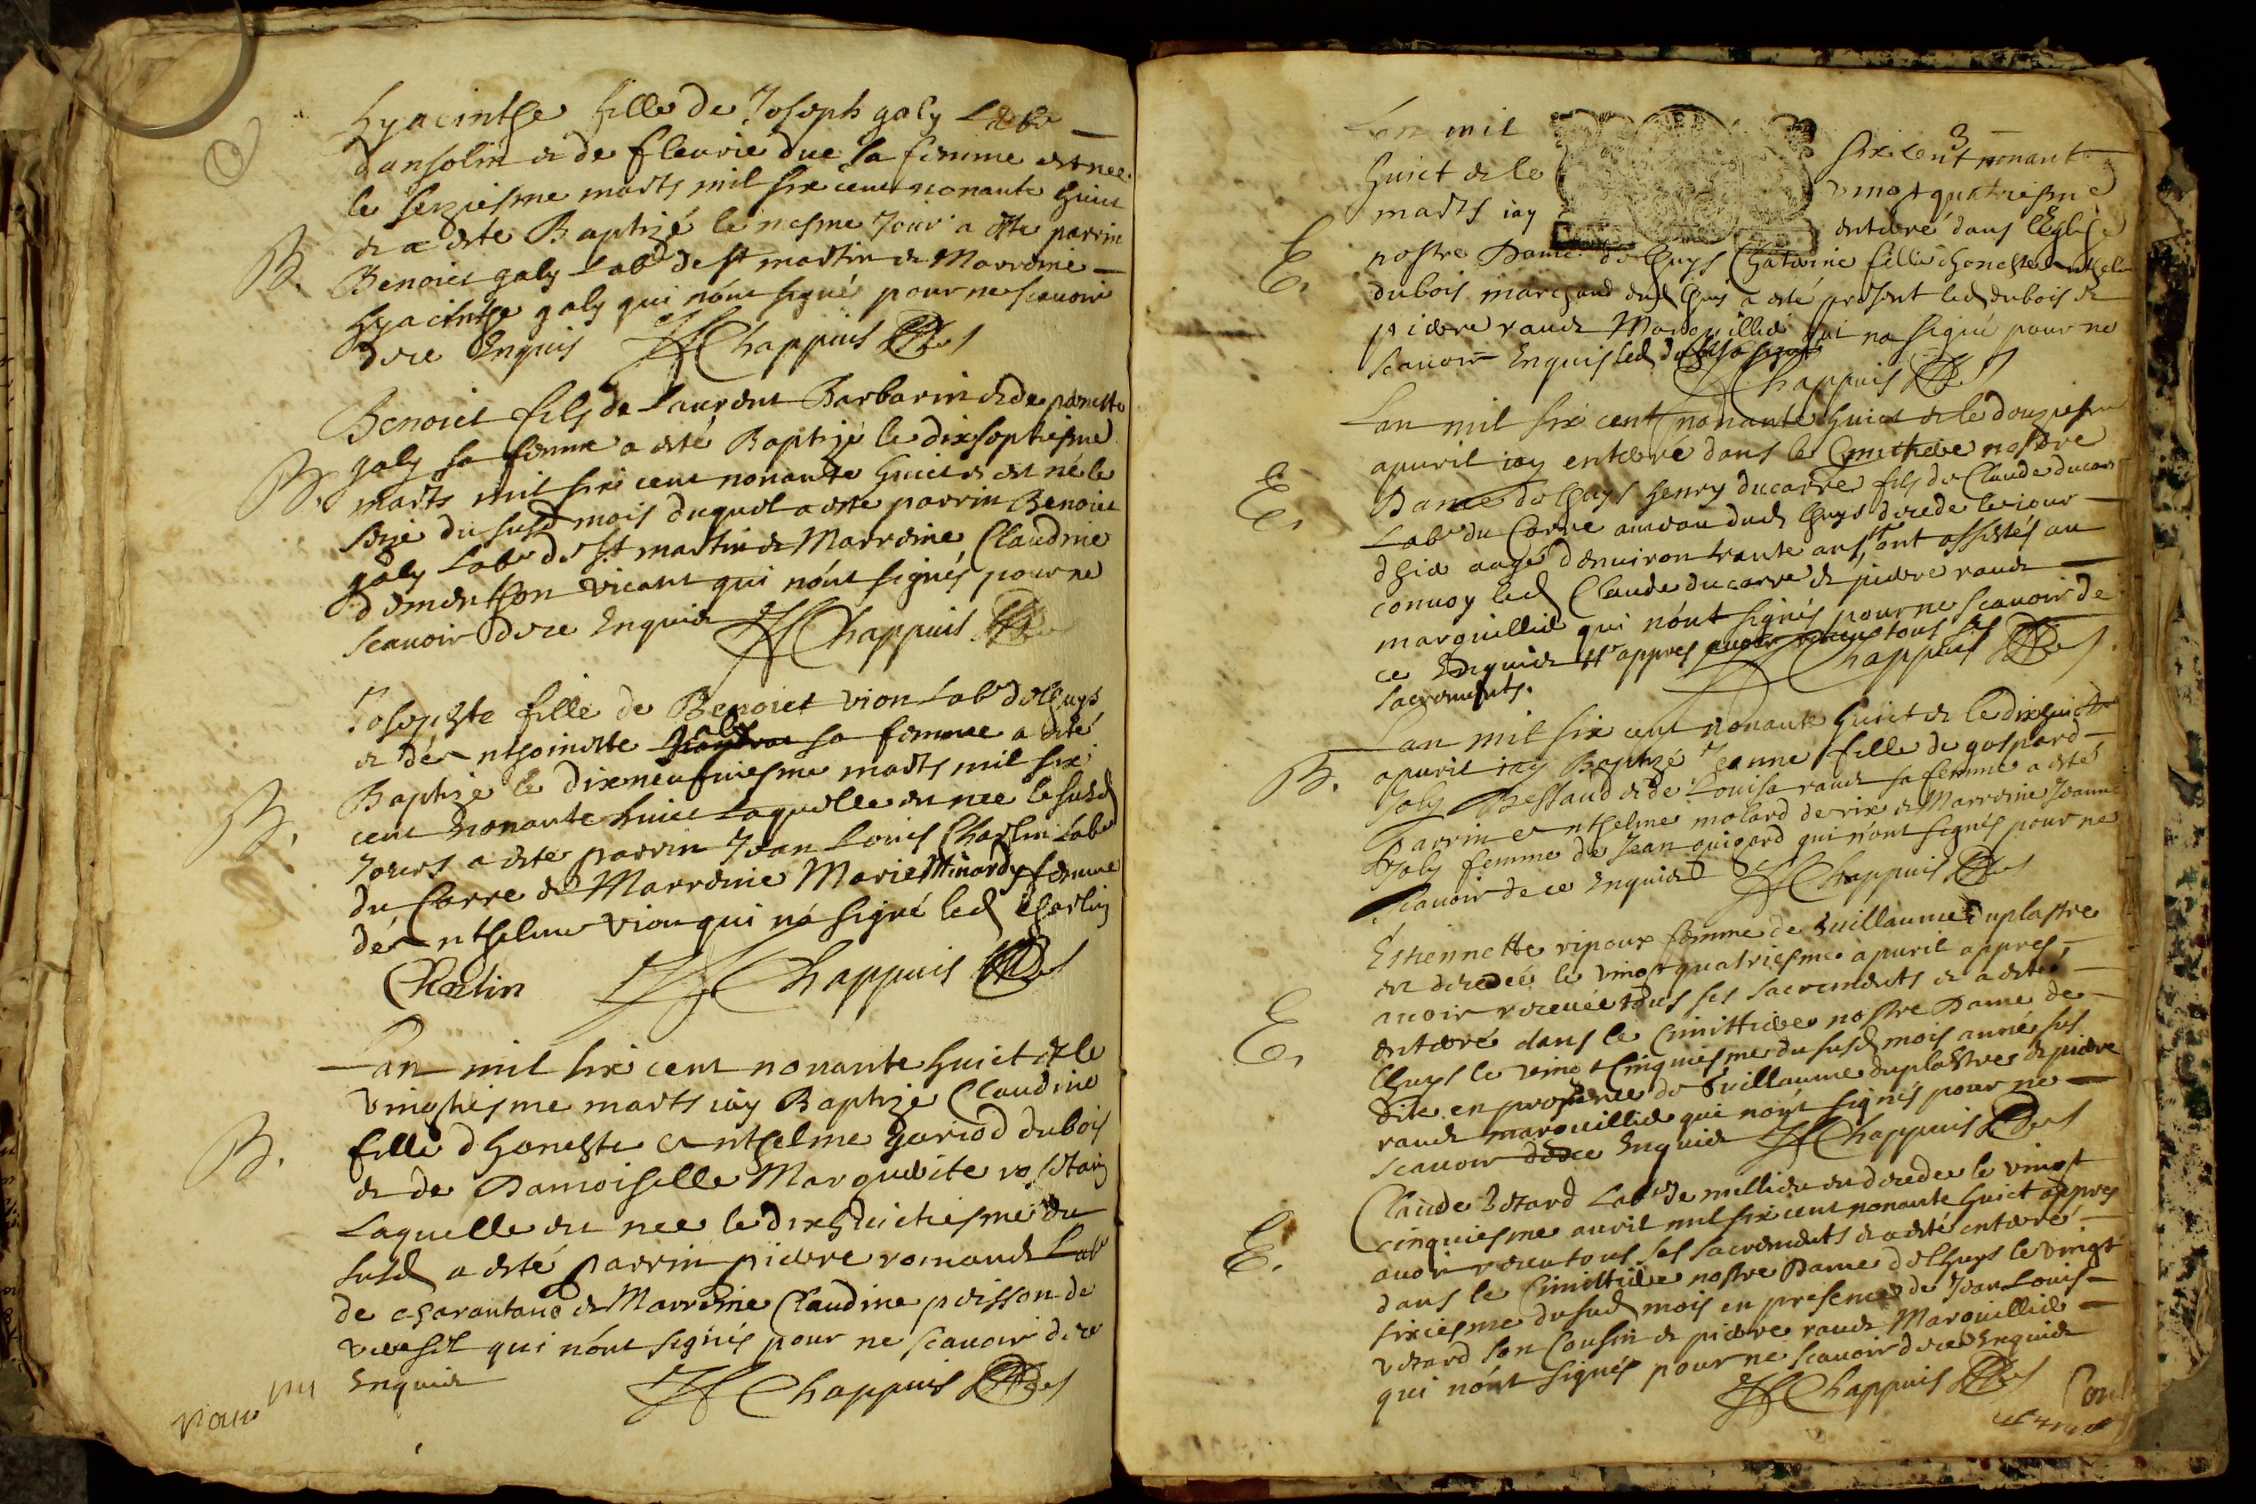 hyacinthe fille de Joseph galy Labr
dansolin & de fleurie due sa femme est nee
le seziesme marts mil six cent nonante huict
& a esté Baptizé le mesme Jour a esté parrin
B. Benoict galy Labr de st martin & Marreine
hyacinthe galy qui nónt signés pour ne scauoir
de ce Enquis Chappuis
Benoict fils de Laurent Barbarin & de pernette
galy sa femme a esté Baptizé le dixseptiesme
B. marts mil six cent nonante huict & est né le
seize du susd mois duquel a esté parrin Benoict
galy Labr de st martin & Marreine Claudine
qui nónt signés pour ne
scauoir de ce Enquis Chappuis
Josephte fille de Benoict vion Labr de lhuys
& de Anthoinette galy sa femme a esté
Baptizé le dixneufuiesme marts mil six
B. cent nonante huict Laquelle est nee le susd
Jours a esté parrin Jean Louis Charlin Labr
du Carre & Marreine Marie Minardy femme
de Anthelme vion qui ná signé led Charlin
Charlin Chappuis
Lan mil six cent nonante huict & le
vingtiesme marts iay Baptizé Claudine
B. fille dhoneste Anthelme gariod dubois
& de Damoiselle Marguerite
Laquelle est nee le dixhuictiesme du
susd a esté parrin pierre romand Labr
de charantano & Marreine Claudine poisson de
qui nónt signés pour ne scauoir de ce
Enquis Chappuis
Lan mil six cent nonante
3
huict & le vingt quatriesme
marts iay enterré dans lEglise
E. nostre Dame de lhuys Chaterine fille dhoneste Anthelme
dubois marchand dud lhuys a esté présent led dubois &
pierre raude Marguillier qui na signé pour ne
scauoir Enquis led dubois a signé
Chappuis
Lan mil six cent nonante huict & le douziesme
apuril iay enterré dans le Cymithiere nostre
E. Dame de lhuys henry ducarre fils de Claude ducarre
Labr du Carre ameau dud lhuys decede le iour
dhier aagé denuiron trante ans, ont assistés au
conuoy led Claude ducarre & pierre raude
marguillier qui nónt signés pour ne scauoir de
ce Enquis appres auoir receu tous ses
sacrements. Chappuis
Lan mil six cent nonante huict & le dixhuict
B. apuril iay Baptizé Jeanne fille de gaspard
Joly Bessaud & de Louise raude sa femme a esté
Parrin Anthelme molard de rix & Marreine Jeanne
Joly femme de Jean guigard qui nónt signés pour ne
scauoir de ce Enquis Chappuis
Estiennette ripoux femme de Guillaume duplastre
est decedée le vingt quatriesme apuril appres
auoir receuée tous ses sacrements & a esté
E. enterré dans le Cimittiere nostre Dame de
lhuys le vingt Cinquiesme du susd mois année sus
dite en presence de Guillaume duplastre & pierre
raude marguillier qui nónt signés pour ne
scauoir de ce Enquis Chappuis
Claude vetard Labr de millieu est decede le vingt
E. cinquiesme auril mil six cent nonante huict appres
auoir receu tous ses sacrements & a esté enterré
dans le Cimittiere nostre Dame de lhuys le vingt
sixiesme du susd mois en presence de Jean Louis
vetard son Cousin & pierre raude Marguillier
qui nónt signés pour ne scauoir de ce Enquis
Chappuis